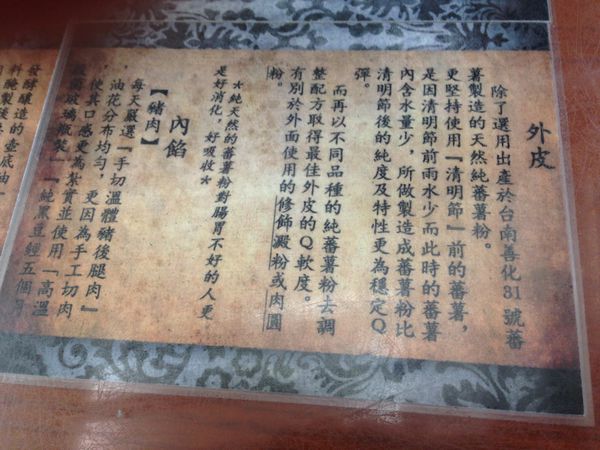 外皮
除了選用出產於台南善化31號蕃
薯製造的天然純蕃薯粉。
更堅持使用『清明節』前的蕃薯，
是因清明節前雨水少而此時的蕃薯
內含水量少，所做製造成蕃薯粉比
清明節後的純度及特性更為穩定Q
彈。
而再以不同品種的純蕃薯粉去調
整配方取得最佳外皮的Q軟度。
有別於外面使用的修飾澱粉或肉圓
粉。
*純天然的蕃薯粉對腸胃不好的人更
是好消化，好吸收*
內餡
【豬肉】
每天嚴選『手切溫體豬後腿肉』
，油花分布均勻，更因為手工切肉
，使其口感更為紮實並使用『高溫
菌玻璃瓶裝』『純黑豆經五個
發酵釀造的壺底油
料醃製後